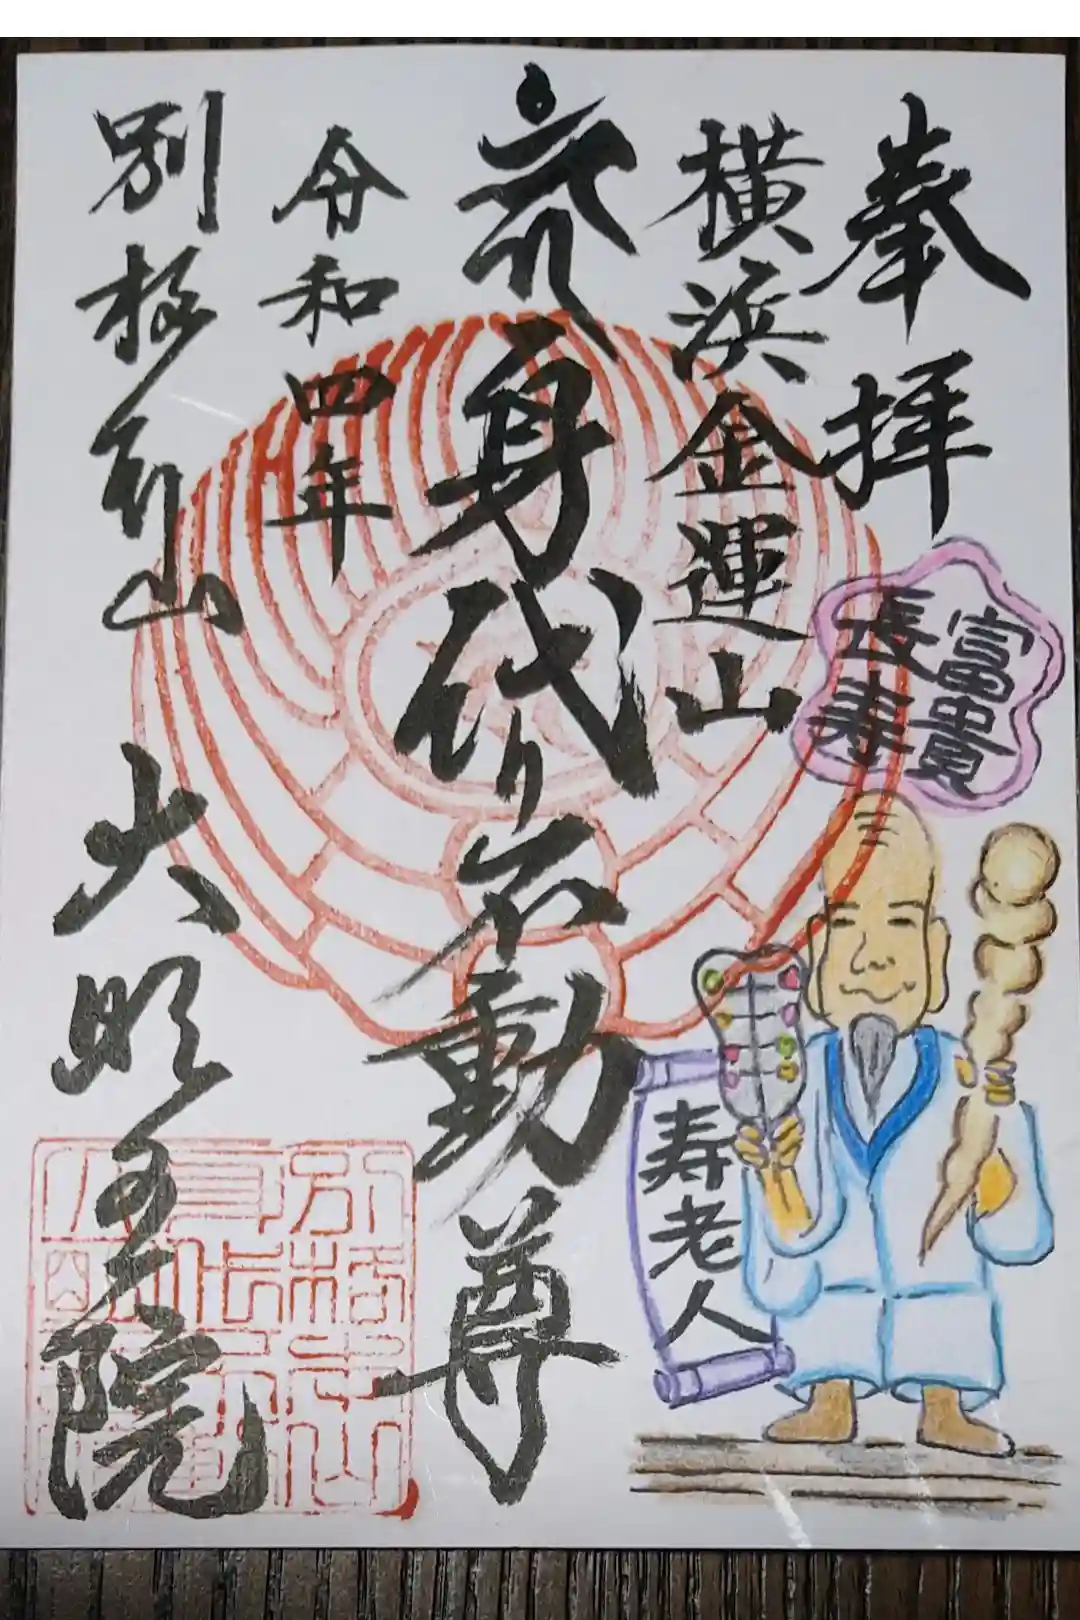 奉拝
横浜金運山
富貴
長寿
寿老人
身代り不動尊
令和四年
別格本山 大明王院
別格本山